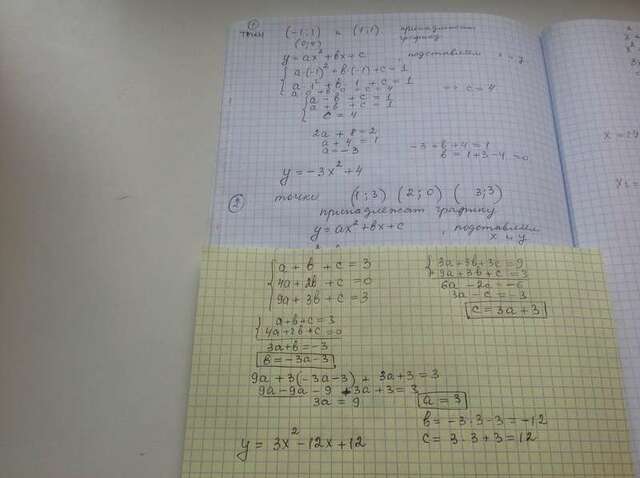 ①
точки (-1;1) и (1;1) принадлежат
(0;4) графику
y = ax² + bx + c подставляем x и y
{ a·(-1)² + b·(-1) + c = 1
a·1² + b·1 + c = 1
a·0 + b·0 + c = 4 => c = 4
{ a - b + c = 1
a + b + c = 1
c = 4
2a + 8 = 2
a + 4 = 1
a = -3
-3 + b + 4 = 1
b = 1+3-4 = 0
y = -3x² + 4
② точки (1;3) (2;0) (3;3)
принадлежат графику
y = ax² + bx + c , подставляем
x и y
{ a + b + c = 3
4a + 2b + c = 0
9a + 3b + c = 3
{ a+b+c = 3
4a+2b+c = 0
3a+b = -3
b = -3a-3
{ 3a+3b+3c = 9
+ 9a+3b+c = 3
6a - 2c = -6
3a - c = -3
c = 3a + 3
9a + 3(-3a-3) + 3a+3 = 3
9a - 9a - 9 + 3a + 3 = 3
3a = 9
a = 3
b = -3·3-3 = -12
c = 3·3+3 = 12
y = 3x² - 12x + 12